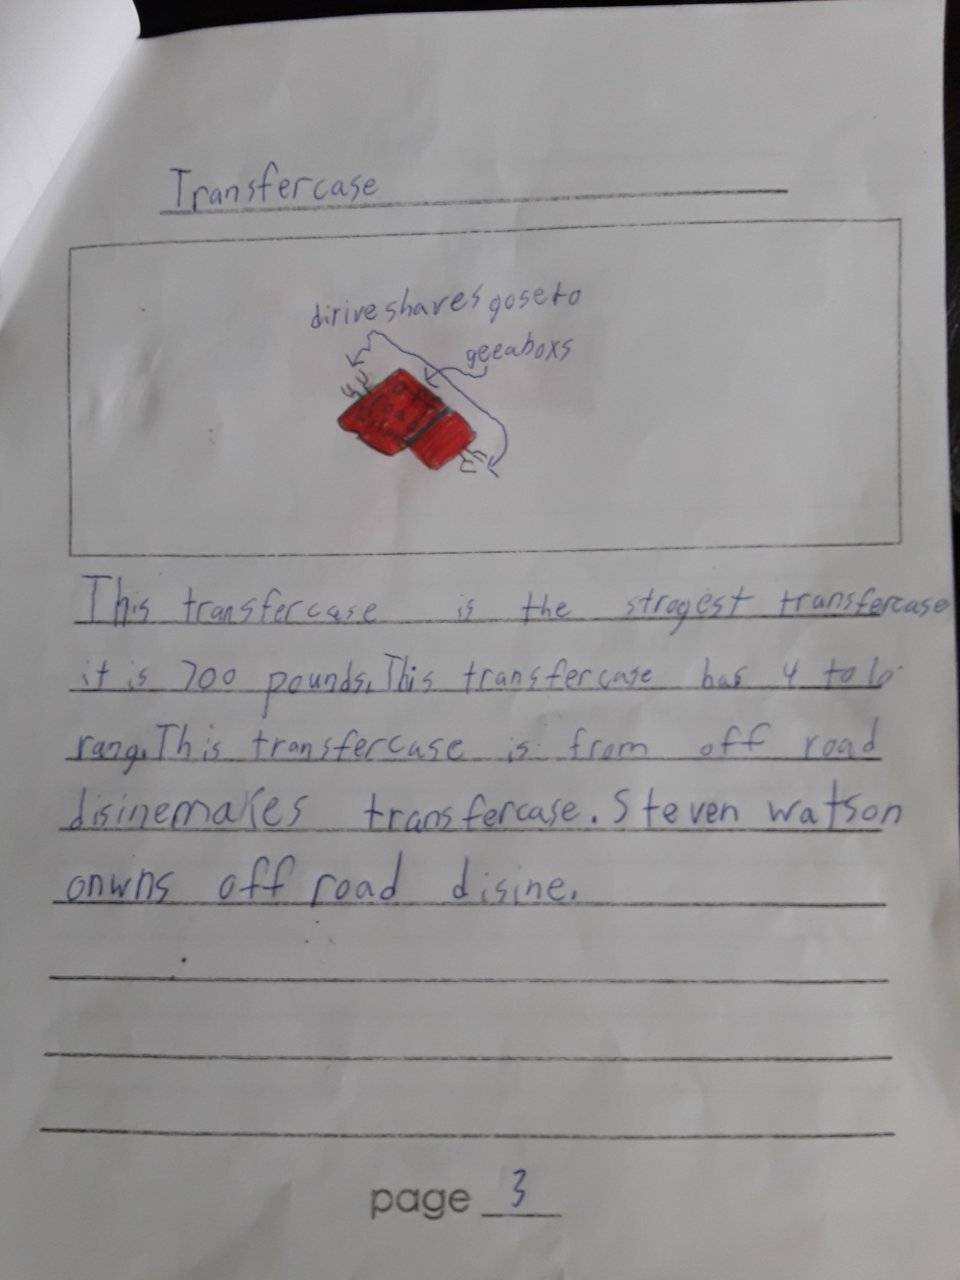 Transfercase
dirive shaves gose to
geeaboxs
off
Road
This transfercase is the strogest transfercase
it is 700 pounds. This transfercase has 4 to 10
rang. This transfercase is from off road
disinemakes transfercase. Steven watson
onwns off road disine.
page 3